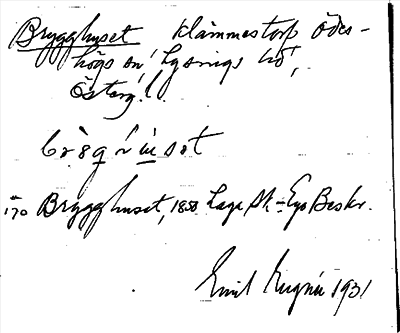 Brygghuset Klämmestorp Ödes-
högs sn, Lysings hd,
Österg. l.
brèqhùsət
170 Brygghuset, 1858, Laga Sk-Ego Beskr.
Emil 1931